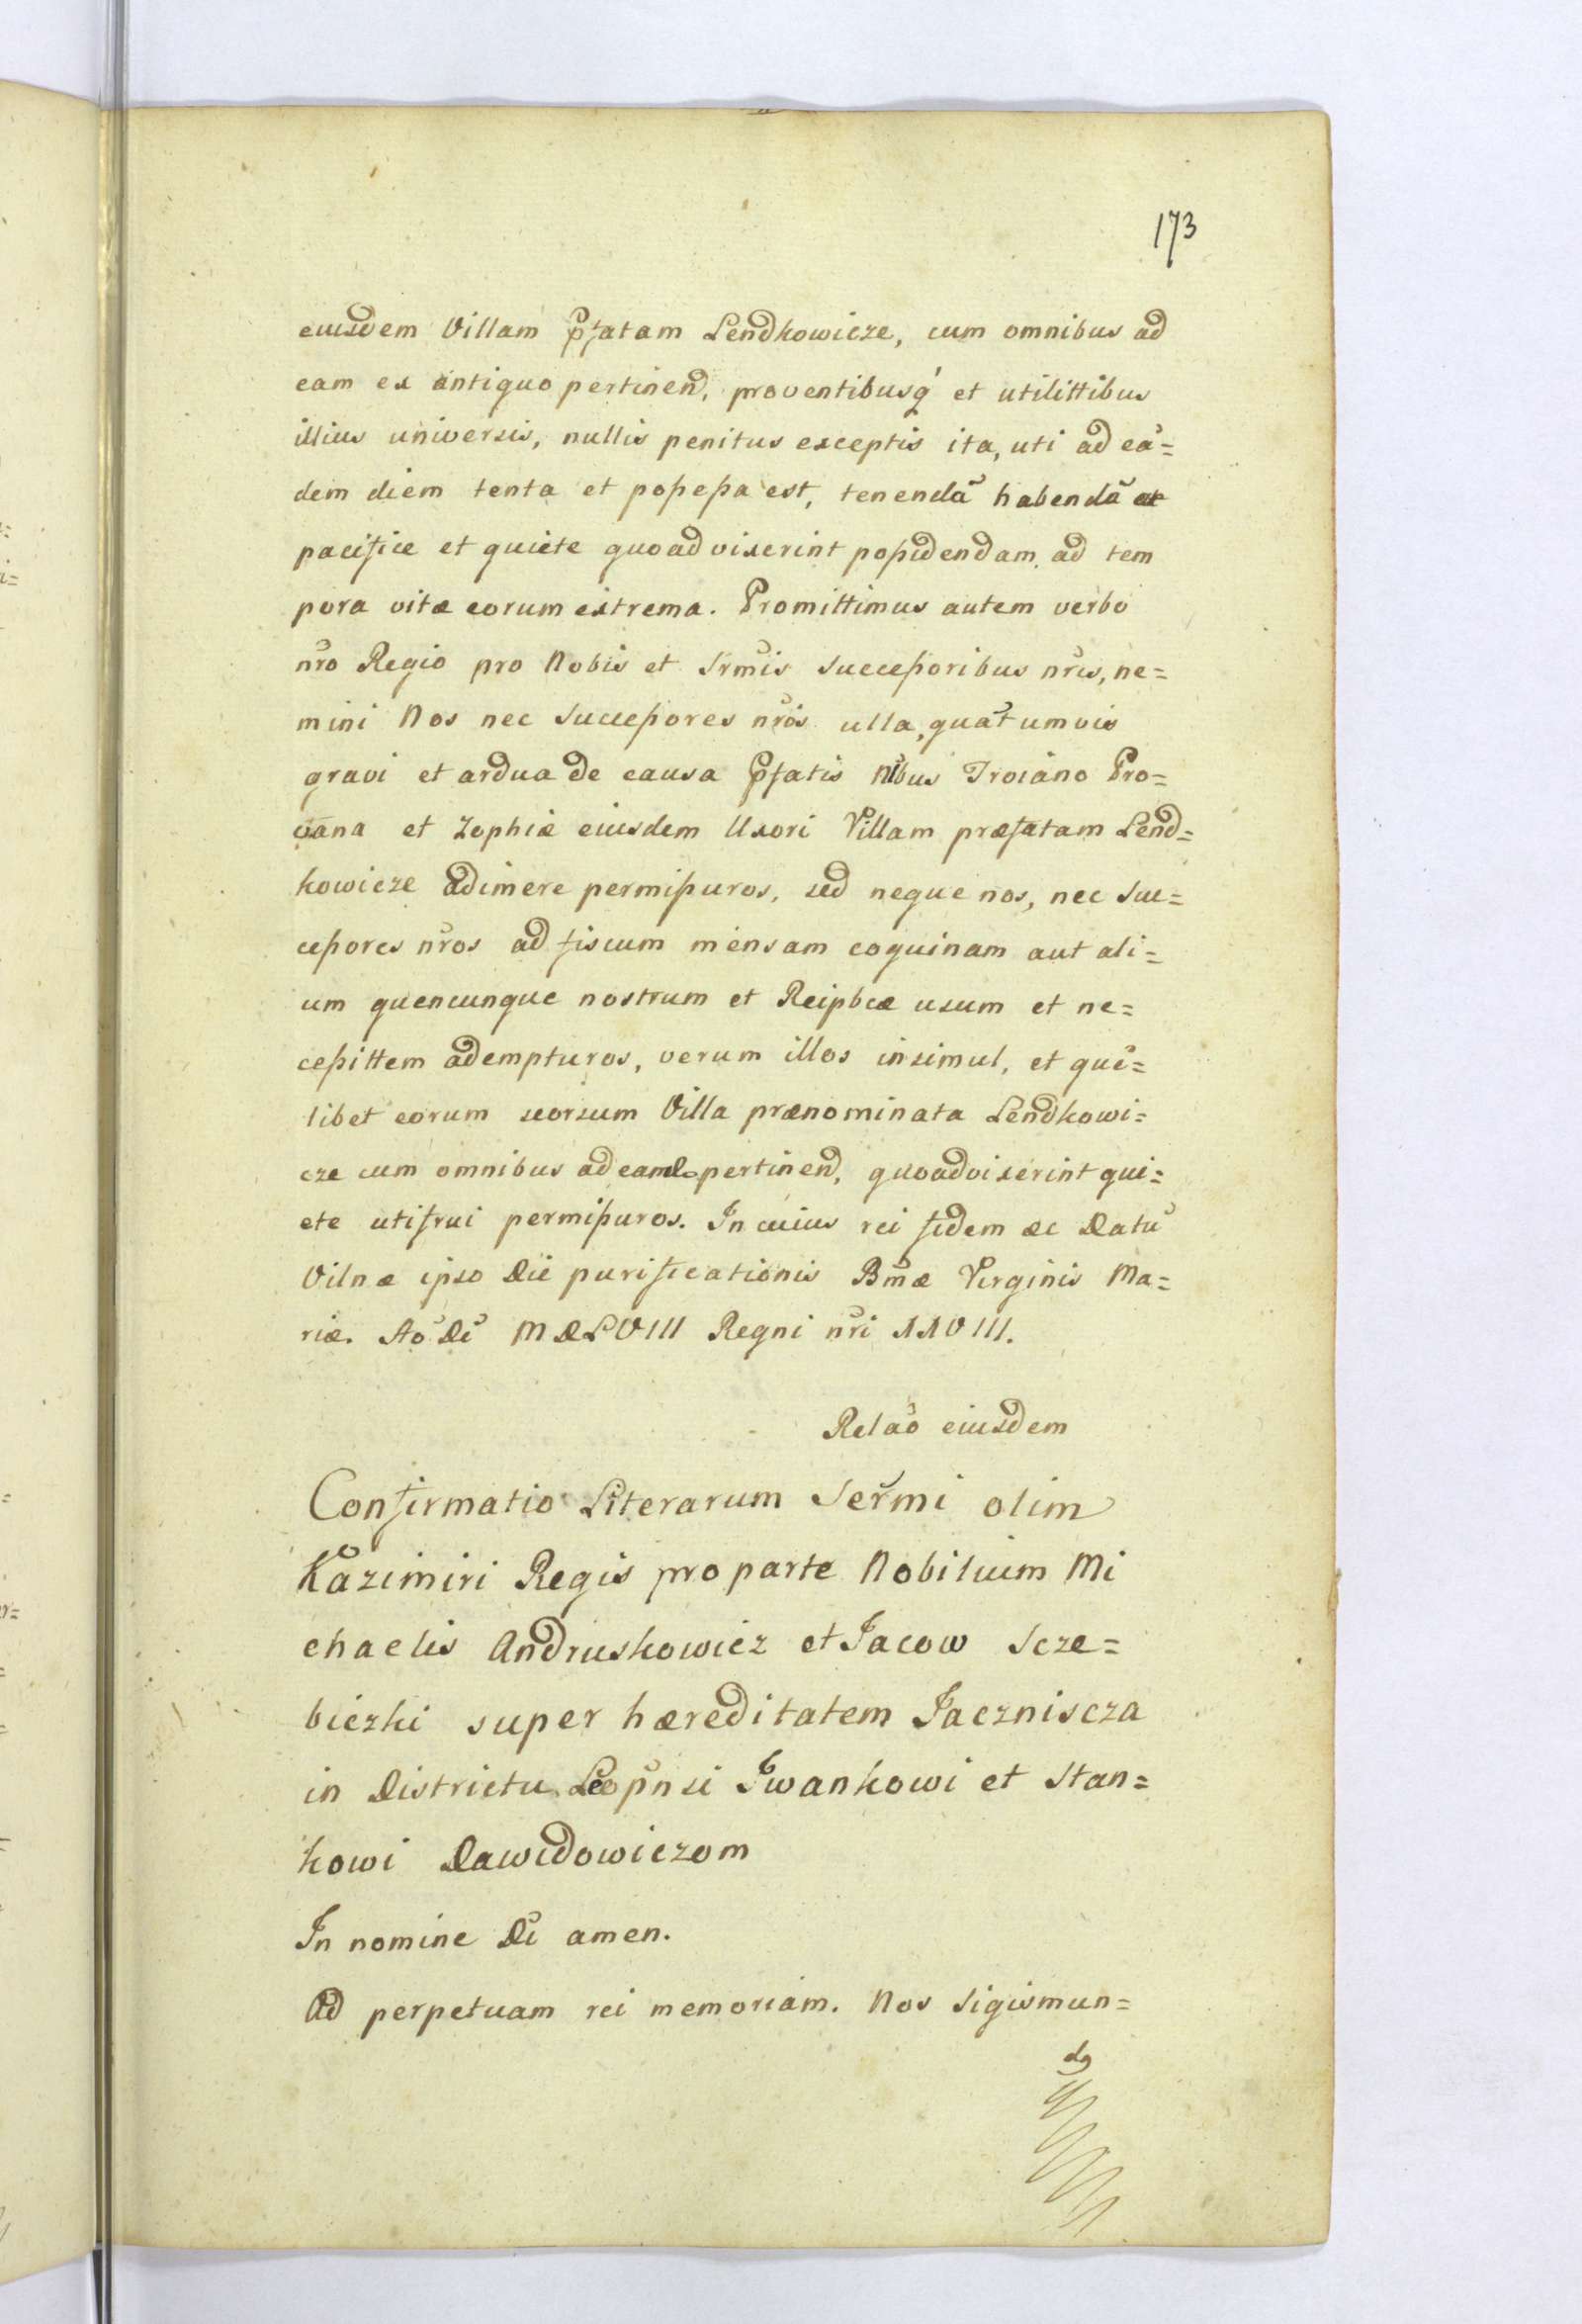 173
eiusdem Villam pfatam Lendkowicze, cum omnibus ad
eam ex antiquo pertinen̄d, proventibusq́ et utilittibus
illius universis, nullis penitus exceptis ita, uti ad eã=
dem diem tenta et possessa est, tenendã habendã ac
pacifice et quiete quoad vixerint possidendam, ad tem
pora vitæ eorum extrema. Promittimus autem verbo
nr̃o Regio pro Nobis et Srm̃is successoribus nr̃is, ne=
mini Nos nec successores nr̃os ulla, quãtumvis
gravi et ardua de causa pfatis Nl̃bus Troiano Pro=
vana et Zophiæ eiusdem Uxori Villam præfatam Lend=
kowicze adimere permissuros, sed neque nos, nec suc=
cessores nr̃os ad fiscum mensam coquinam aut ali=
um quencunque nostrum et Reipbcæ usum et ne=
cessittem adempturos, verum illos insimul, et quẽ=
libet eorum seorsum Villa prænominata Lendkowi=
cze cum omnibus ad eam pertinen̄d, quoad vixerint qui=
ete utifrui permissuros. In cuius rei fidem &c Datũ
Vilnæ ipso Die purificationis Bm̃æ Virginis Ma=
riæ. Aõ Dĩ MDLVIII Regni nr̃i XXVIII.
Relaõ eiusdem
Confirmatio Literarum Ser̃mi olim
Kazimiri Regis pro parte Nobilium Mi
chaelis Andruskowicz et Jacow Scze=
biczki super hæreditatem Jaczniscza
in Districtu Leop̃nsi Iwankowi et Stan=
kowi Dawidowiczom
In nomine Dĩ amen.
Ad perpetuam rei memoriam. Nos Sigismun=
dg